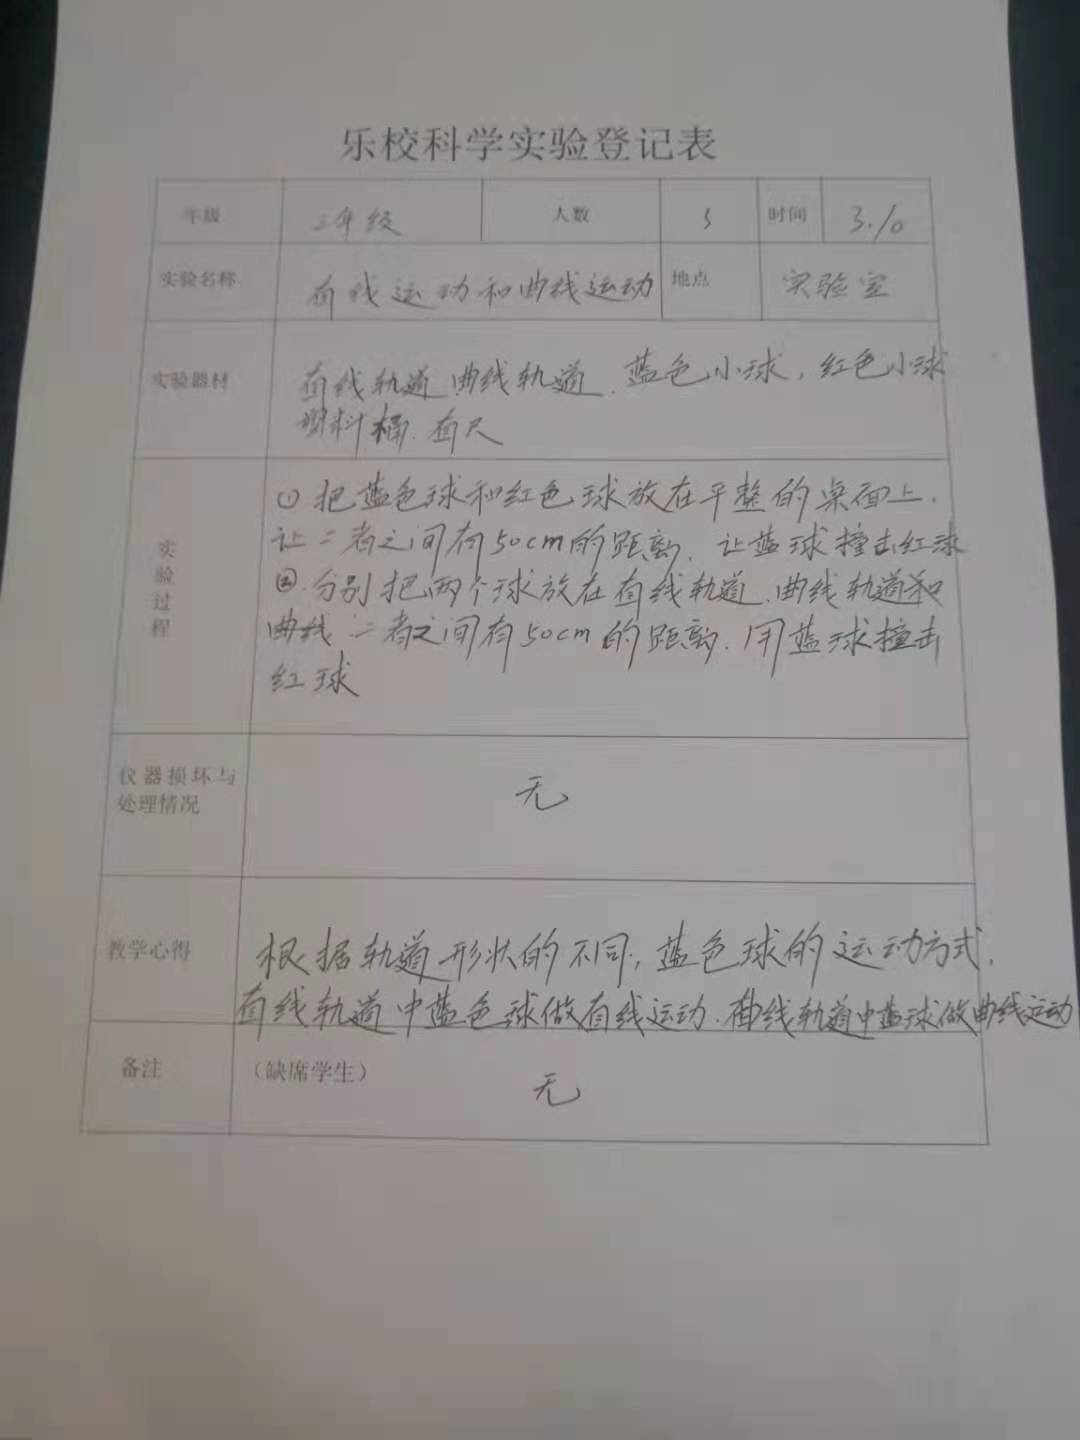 乐校科学实验登记表
年级 三年级 人数 3 时间 3.10
实验名称 直线运动和曲线运动 地点 实验室
实验器材 直线轨道 曲线轨道.蓝色小球,红色小球
塑料桶.直尺
实验过程
①把蓝色球和红色球放在平整的桌面上.
让二者之间有50cm的距离.让蓝球撞击红球
②.分别把两个球放在直线轨道.曲线轨道和
曲线 二者之间有50cm的距离.用蓝球撞击
红球
仪器损坏与
处理情况
无
教学心得 根据轨道形状的不同,蓝色球的运动方式.
直线轨道中蓝色球做直线运动.曲线轨道中蓝球做曲线运动
备注 (缺席学生) 无